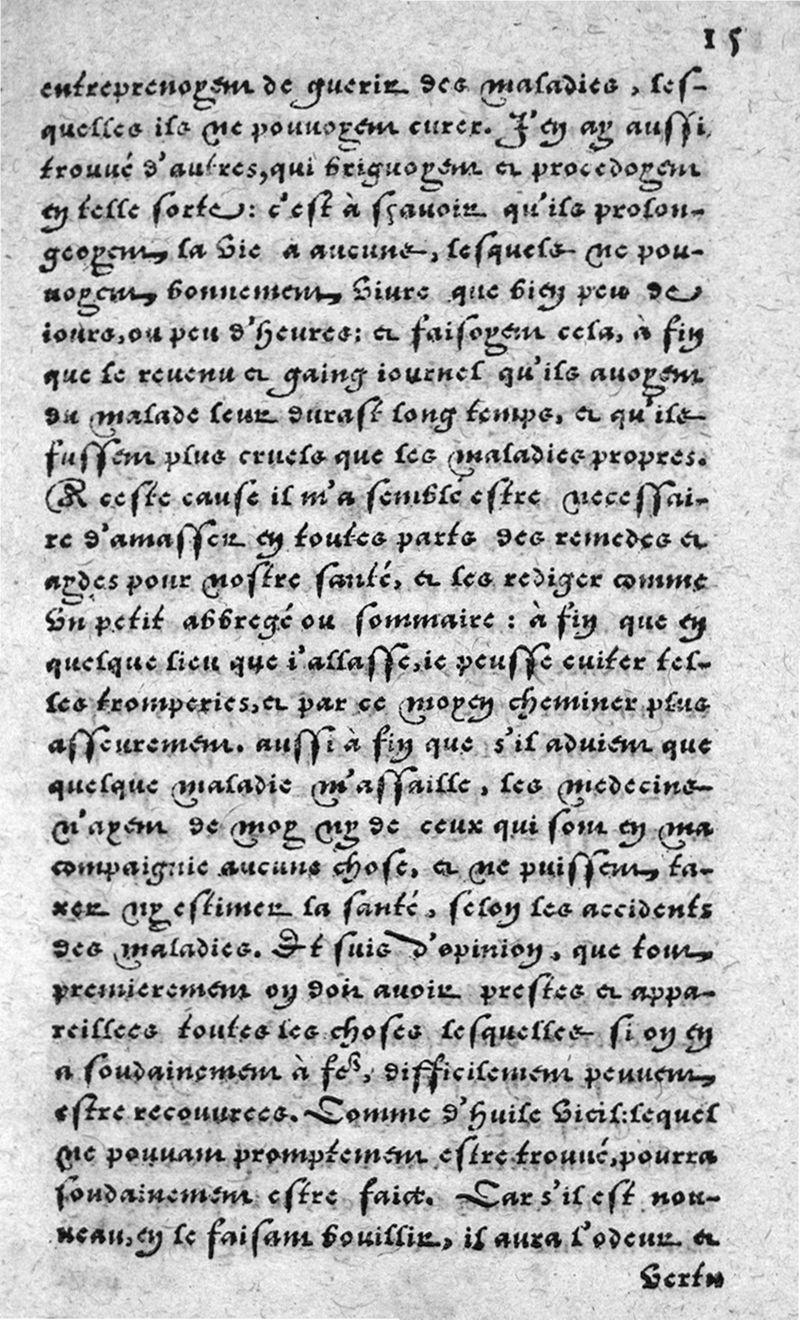 15
entreprenoyent de guerir des maladies, les-
quelles ils ne pouuoyent curer. J'en ay aussi
trouué d'autres, qui briguoyent et procedoyent
en telle sorte: c'est à sçauoir qu'ils prolon-
geoyent la vie a aucuns, lesquels ne pou-
uoyent bonnement viure que bien peu de
iours, ou peu d'heures: et faisoyent cela, à fin
que le reuenu et gaing iournel qu'ils auoyent
du malade leur durast long temps, et qu'ils
fussent plus cruels que les maladies propres.
A ceste cause il m'a semblé estre necessai-
re d'amasser en toutes parts des remedes et
aydes pour nostre santé, et les rediger comme
vn petit abbregé ou sommaire: à fin que en
quelque lieu que i'allasse, ie peusse euiter tel-
les tromperies, et par ce moyen cheminer plus
asseurement. aussi à fin que s'il aduient que
quelque maladie m'assaille, les medecins
n'ayent de moy ny de ceux qui sont en ma
compaignie aucune chose, et ne puissent ta-
xer ny estimer la santé, selon les accidents
des maladies. Et suis d'opinion, que tout
premierement on doit auoir prestes et appa-
reillees toutes les choses lesquelles si on en
a soudainement à fe⁹, difficilement peuuent
estre recouurees. Comme d'huile vieil: lequel
ne pouuant promptement estre trouué, pourra
soudainement estre faict. Car s'il est nou-
ueau, en le faisant bouillir, il aura l'odeur et
vertu